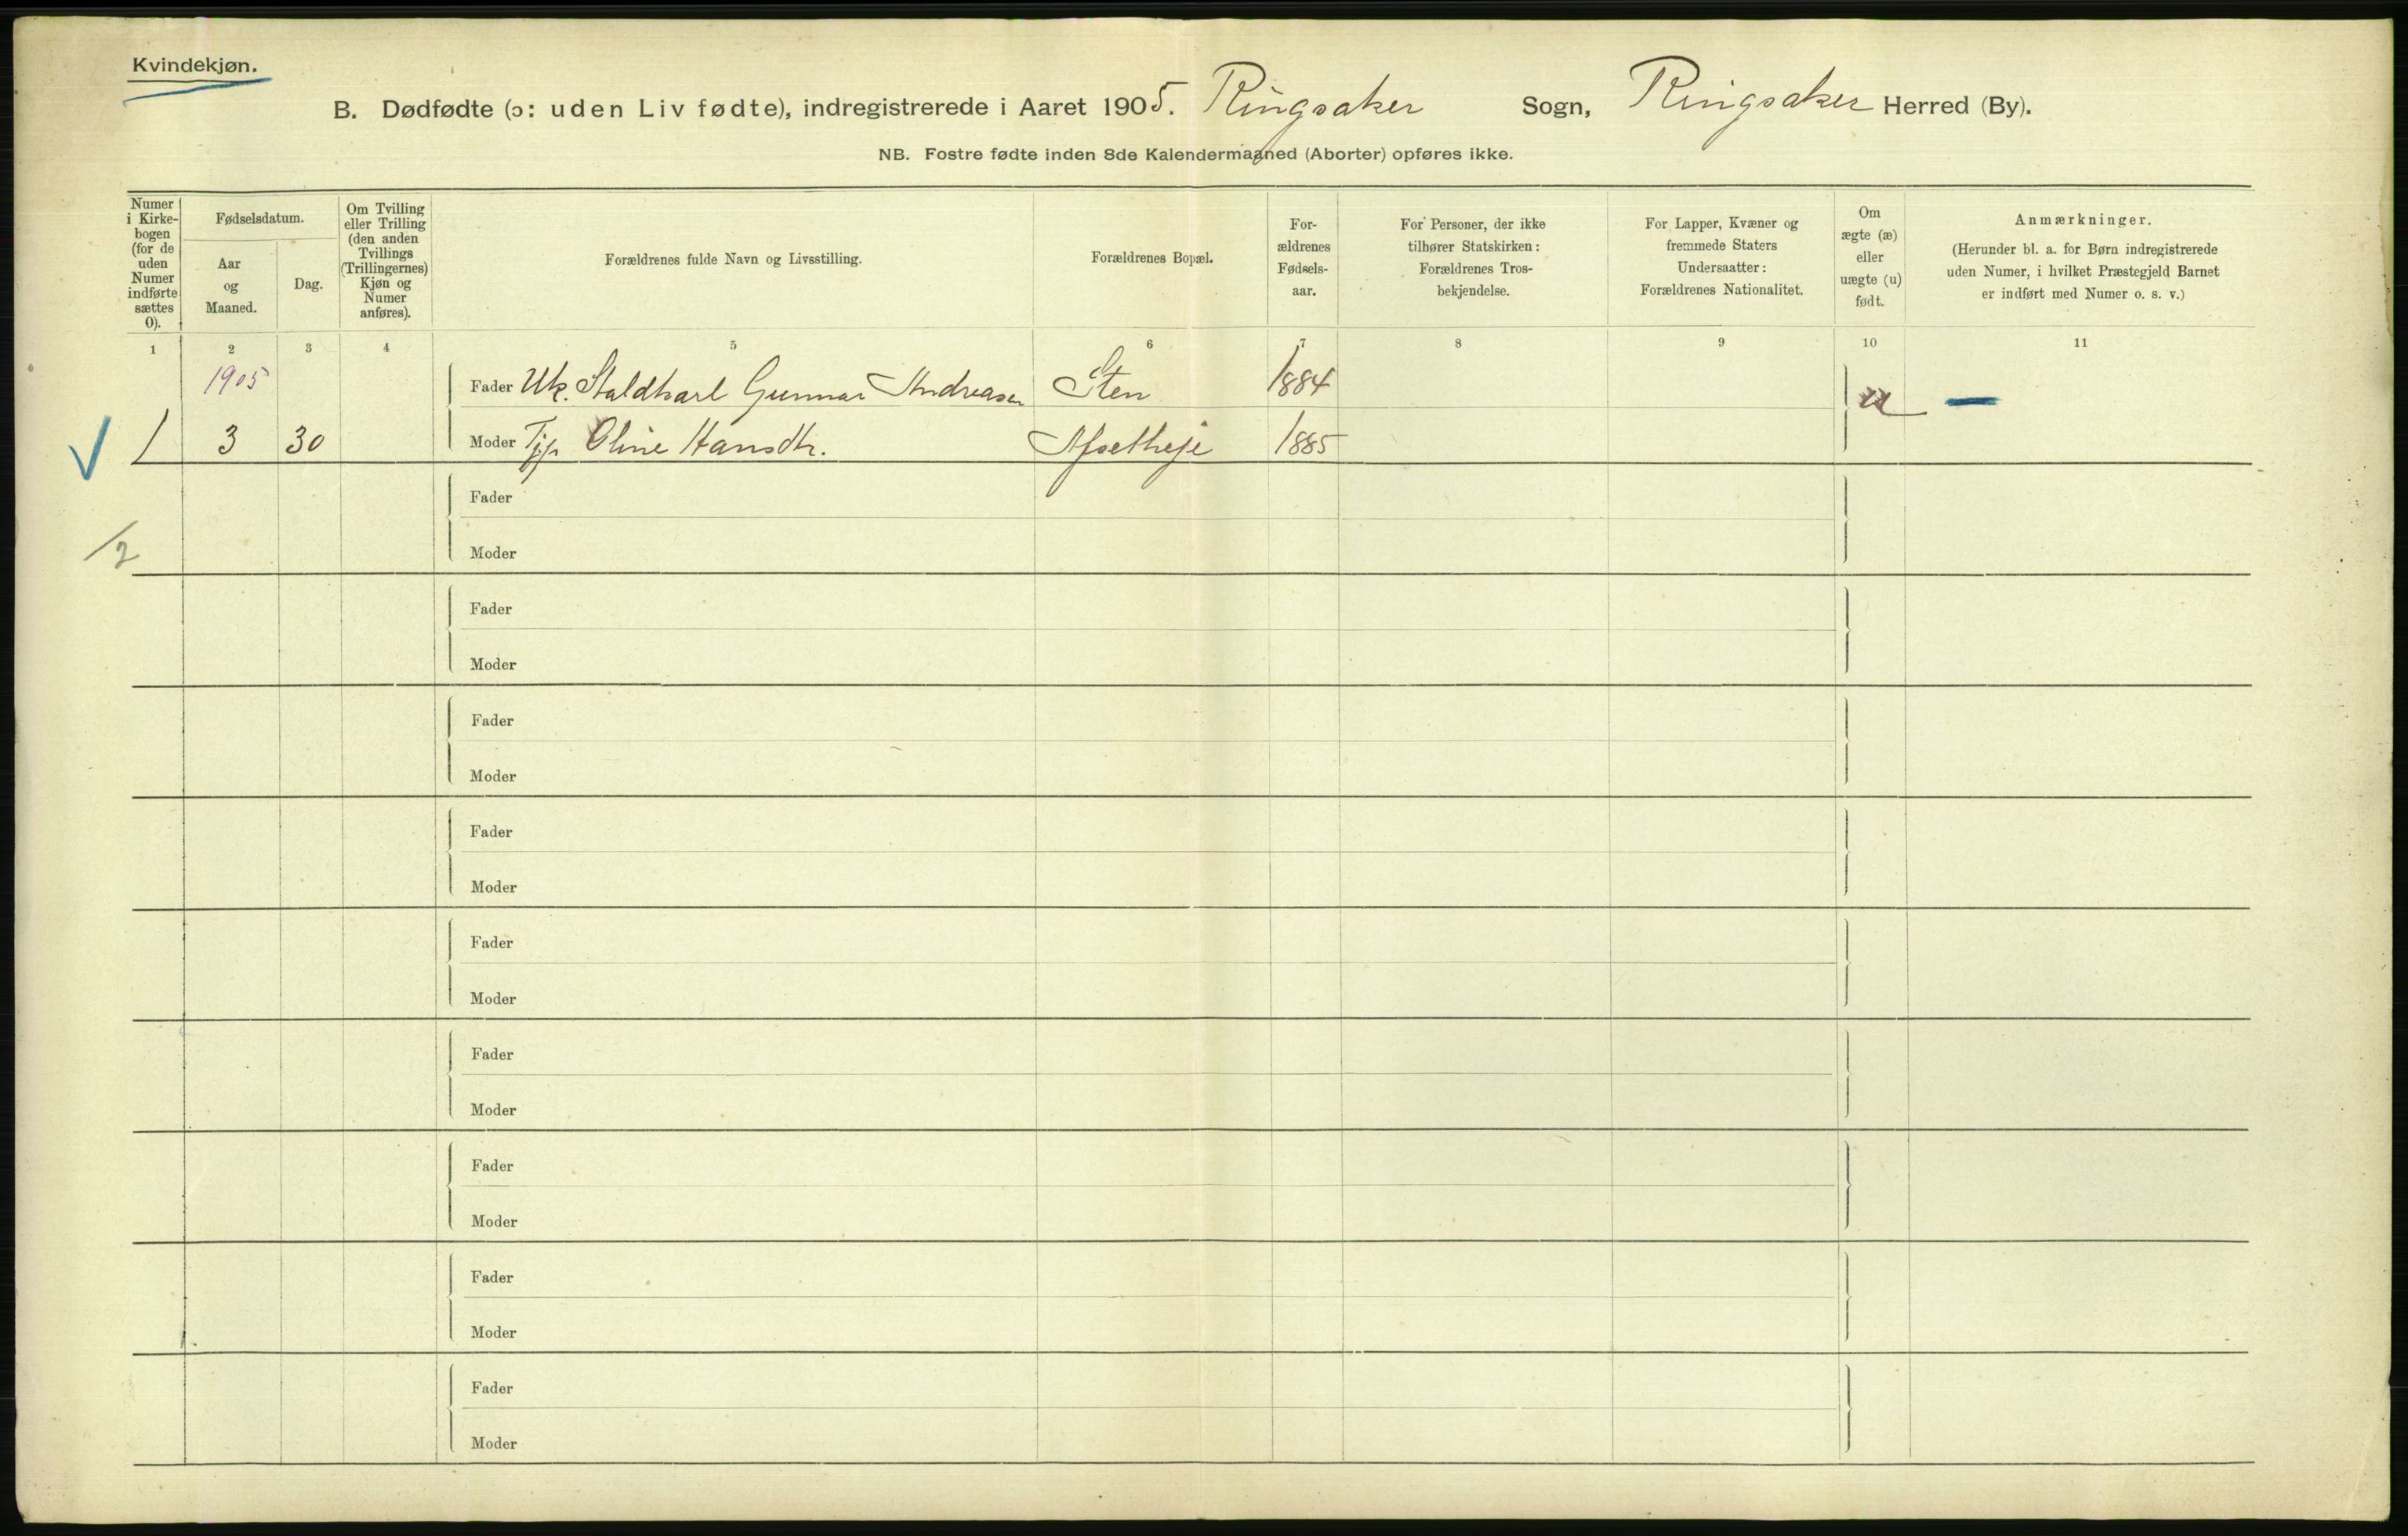 Kvindekjøn.
B. Dødfødte (ɔ: uden Liv fødte), indregistrerede i Aaret 1905. Ringsaker Sogn, Ringsaker Herred (By).
NB. Fostre fødte inden 8de Kalendermaaned (Aborter) opføres ikke.
Numer
i Kirke-
bogen
(for de
uden
Numer
indførte
sættes
0).
Fødselsdatum.
Aar
og
Maaned.
Dag.
Om Tvilling
eller Trilling
(den anden
Tvillings
(Trillingernes)
Kjøn og
Numer
anføres).
Forældrenes fulde Navn og Livsstilling.
Forældrenes Bopæl.
For-
ældrenes
Fødsels-
aar.
For Personer, der ikke
tilhører Statskirken:
Forældrenes Tros-
bekjendelse.
For Lapper, Kvæner og
fremmede Staters
Undersaatter:
Forældrenes Nationalitet.
Om
ægte (æ)
eller
uægte (u)
født.
Anmærkninger.
(Herunder bl. a. for Børn indregistrerede
uden Numer, i hvilket Præstegjeld Barnet
er indført med Numer o. s. v.)
1 2 3 4 5 6 7 8 9 10 11
1905 Fader Uk. Staldkarl Gunnar Andreasen Sten 1884 u —
1 3 30 Moder Tjp Oline Hansdtr. 1885
Fader
1/2
Moder
Fader
Moder
Fader
Moder
Fader
Moder
Fader
Moder
Fader
Moder
Fader
Moder
Fader
Moder
Fader
Moder